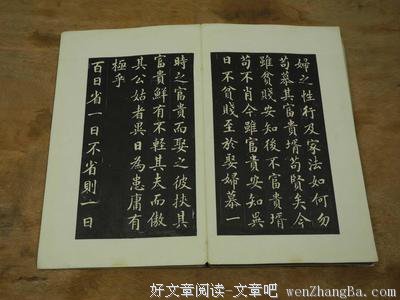 婦之性行及家法如何勿
苟慕其富貴壻苟賢矣今
雖貧賤安知後不富貴壻
苟不肖今雖富貴安知異
日不貧賤至於娶婦慕一
時之富貴而娶之彼挾其
富貴鮮有不輕其夫而傲
其公姑者異日為患庸有
極乎
百日省一日不省則一日
好文章阅读-文章吧 wenZhangBa.com